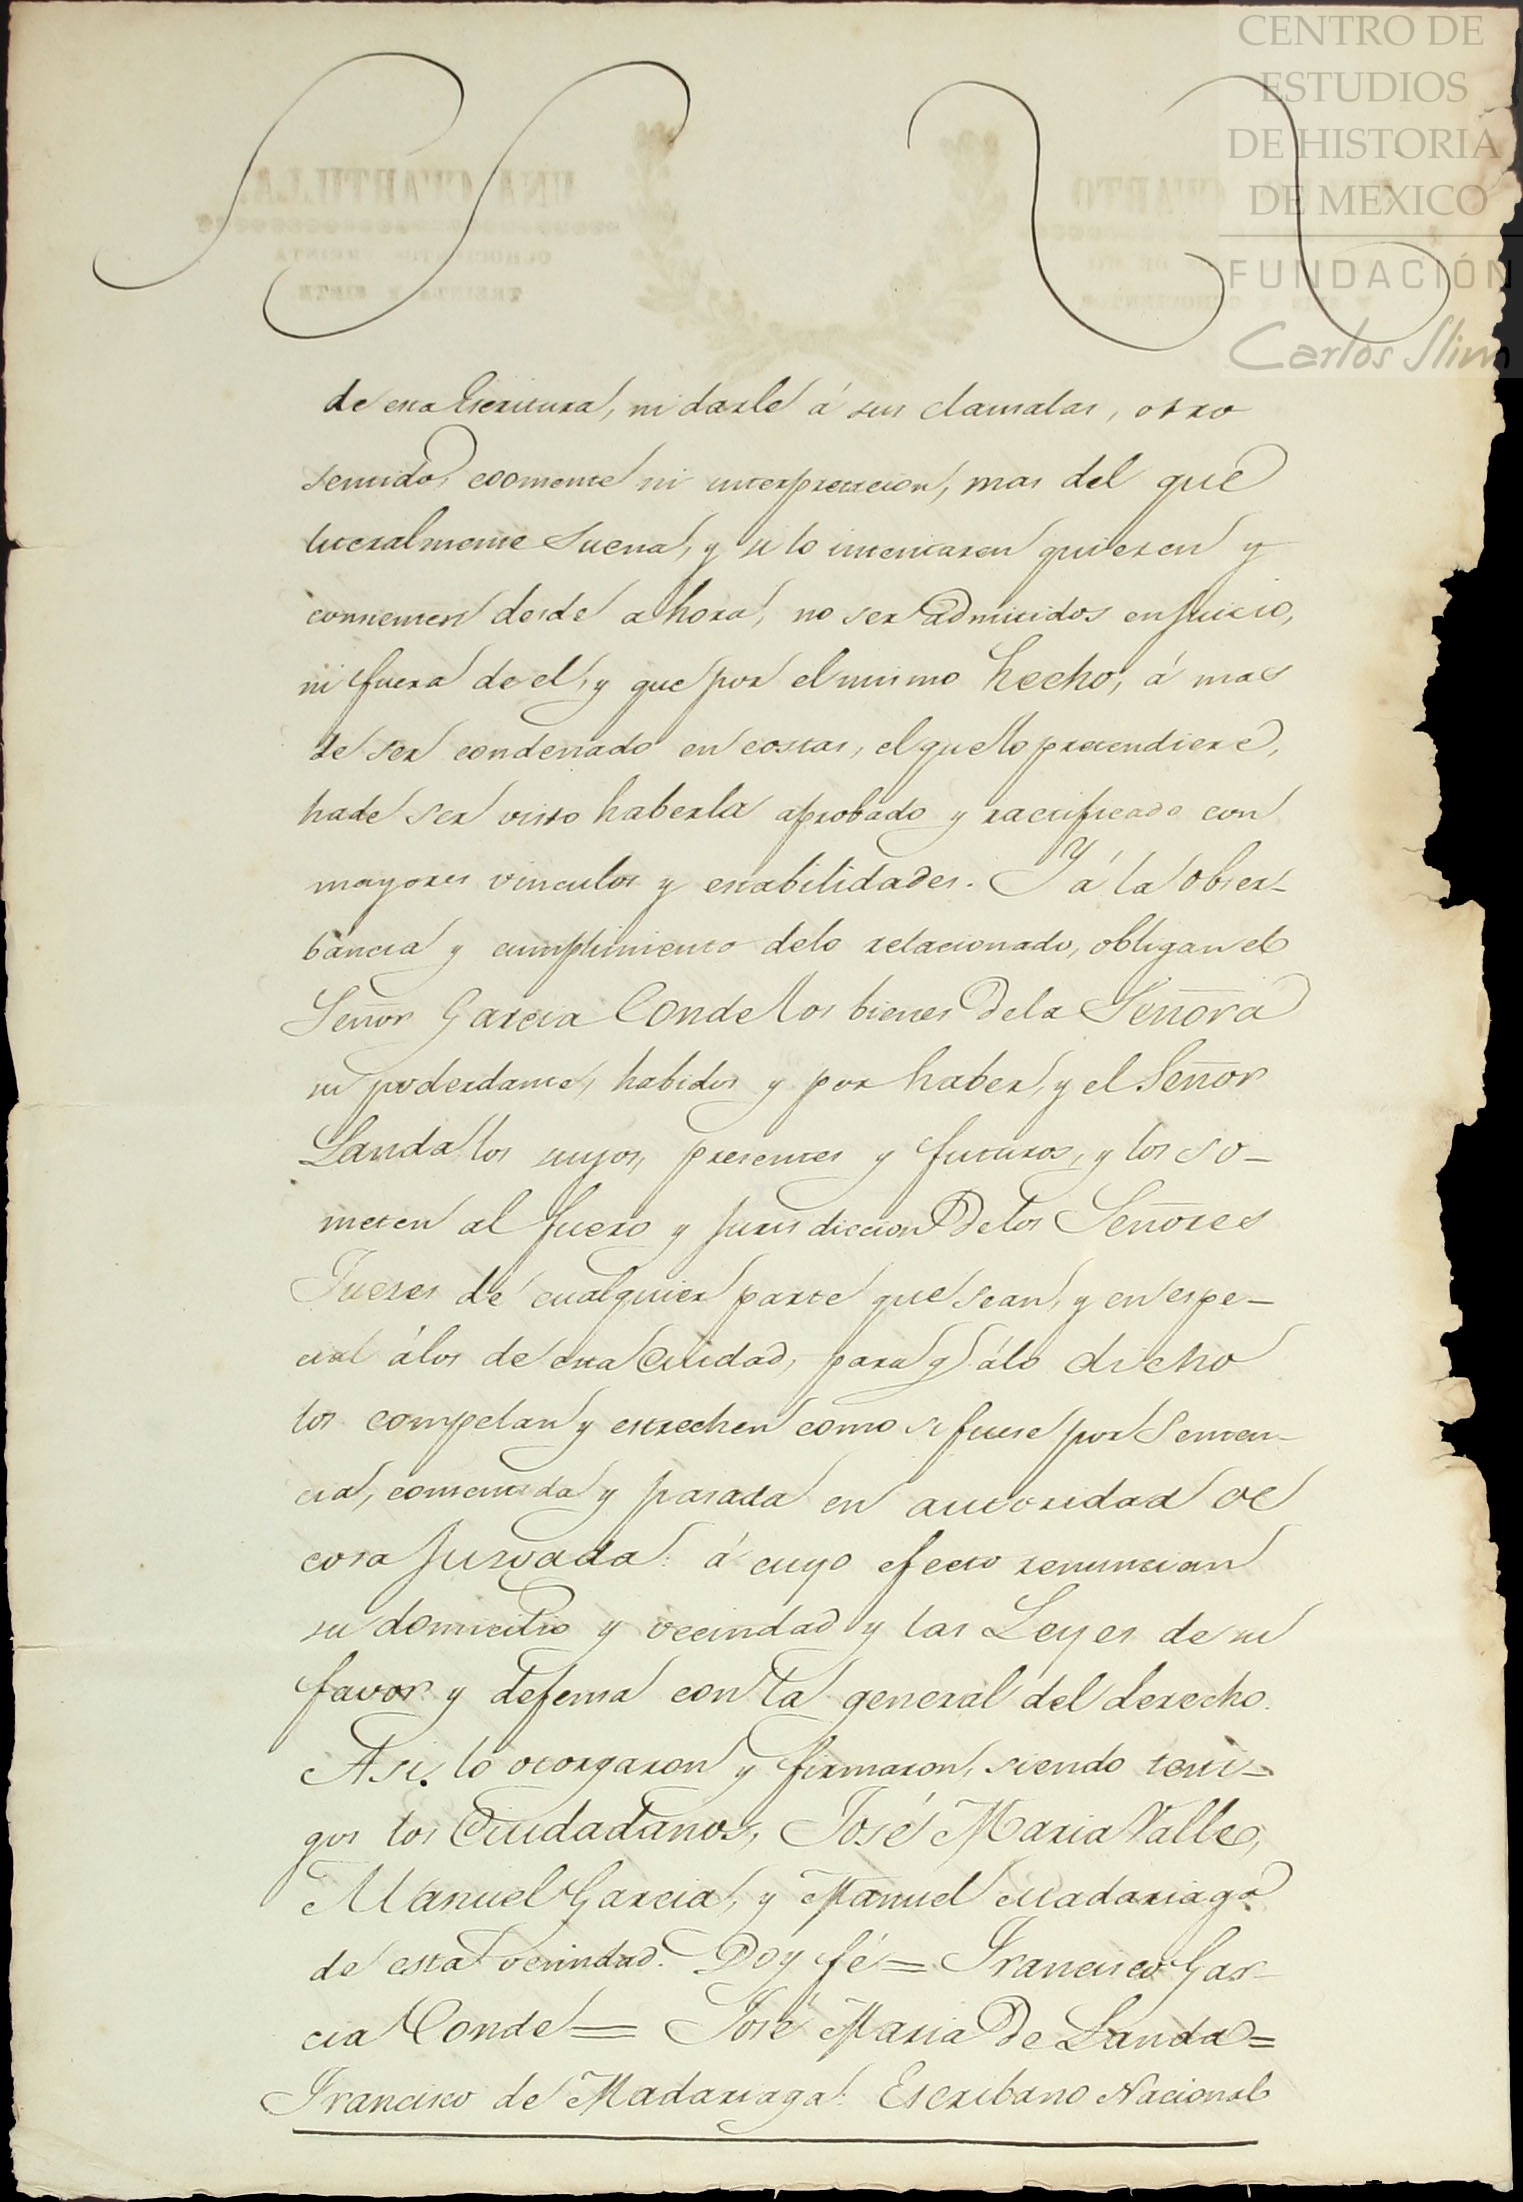 CENTRO DE
ESTUDIOS
DE HISTORIA
DE MEXICO
FUNDACIÓN
Carlos Slim
UNA CUARTILLA
CUARTO
TREINTA Y SIETE
de esta Escritura, ni darle á sus clausulas, otro
sentido, comento ni interpretacion, mas del que
literalmente suena, y si lo intentaren quieren y
consienten desde ahora, no ser admitidos en Juicio,
ni fuera de el, y que por el mismo hecho, á mas
de ser condenado en costas, el que lo pretendiere,
hade ser visto haberla aprobado y ractificado con
mayores vinculos y estabilidades. Y á la obser-
bancia y cumplimiento delo relacionado, obligan el
Señor Garcia Conde los bienes dela Señora
su poderdante, habidos y por haber, y el Señor
Landa los suyos, presentes y futuros, y los so-
meten al fuero y jurisdiccion delos Señores
Jueses de cualquier parte que sean, y en espe-
cial álos de esta Ciudad, para q. álo dicho
los compelan y estrechen como si fuese por senten-
cia, consentida y pasada en autoridad de
cosa Jusgada: á cuyo efecto renuncian
su domicilio y vecindad y las Leyes de su
favor y defensa con la general del derecho.
Asi lo otorgaron y firmaron, siendo testi-
gos los Ciudadanos, José Maria Valle,
Manuel Garcia, y Manuel Madariaga
de esta vecindad. Doy fé = Francisco Gar-
cia Conde = José Maria De Landa =
Francisco de Madariaga: Escribano Nacional